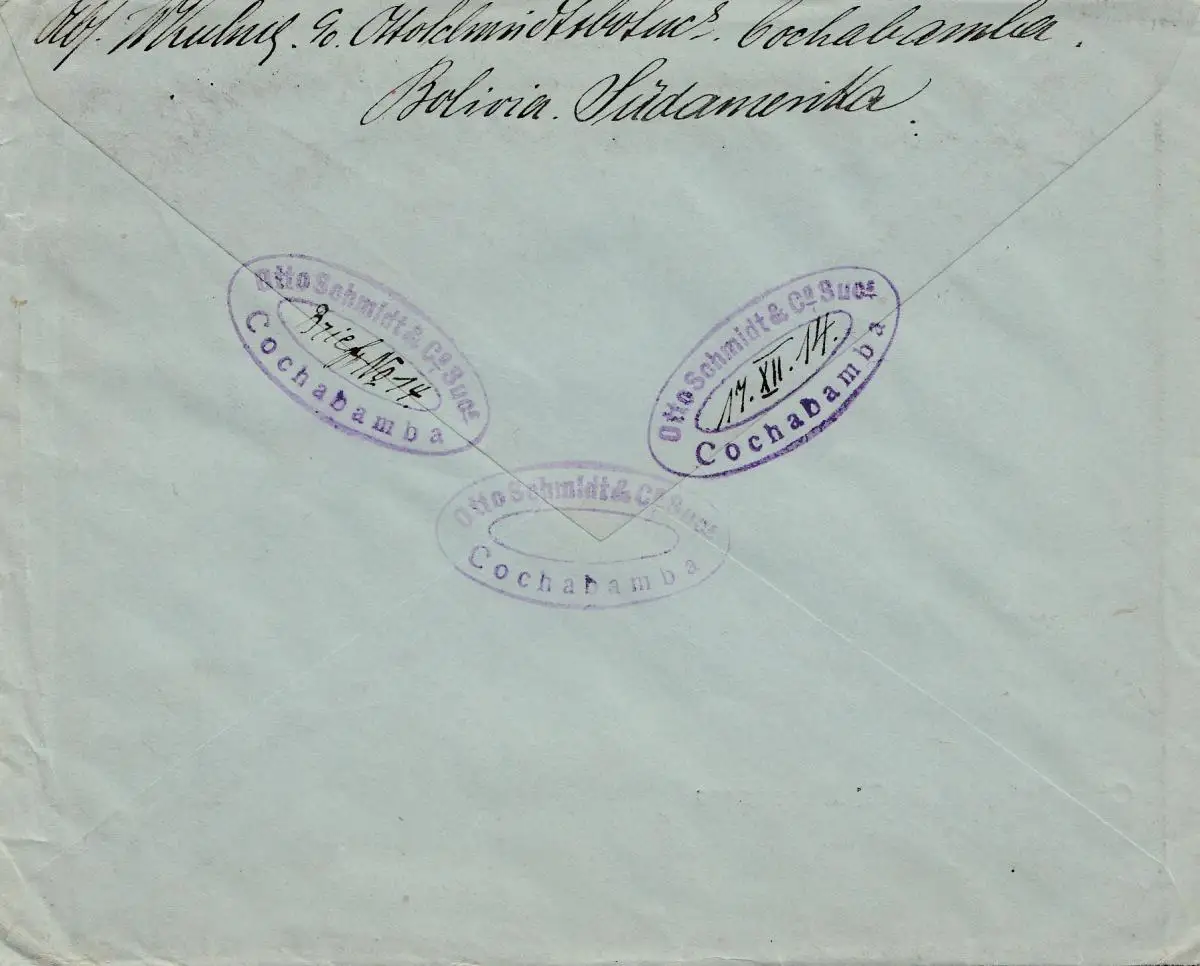 Abs. c/o. Otto Schmidt & Co Sucs. Cochabamba.
Bolivia. Südamerika.
Otto Schmidt & Cº Sucs
Brief. No 14.
Cochabamba
Otto Schmidt & Cº Sucs
17. XII. 14.
Cochabamba
Otto Schmidt & Cº Sucs
Cochabamba